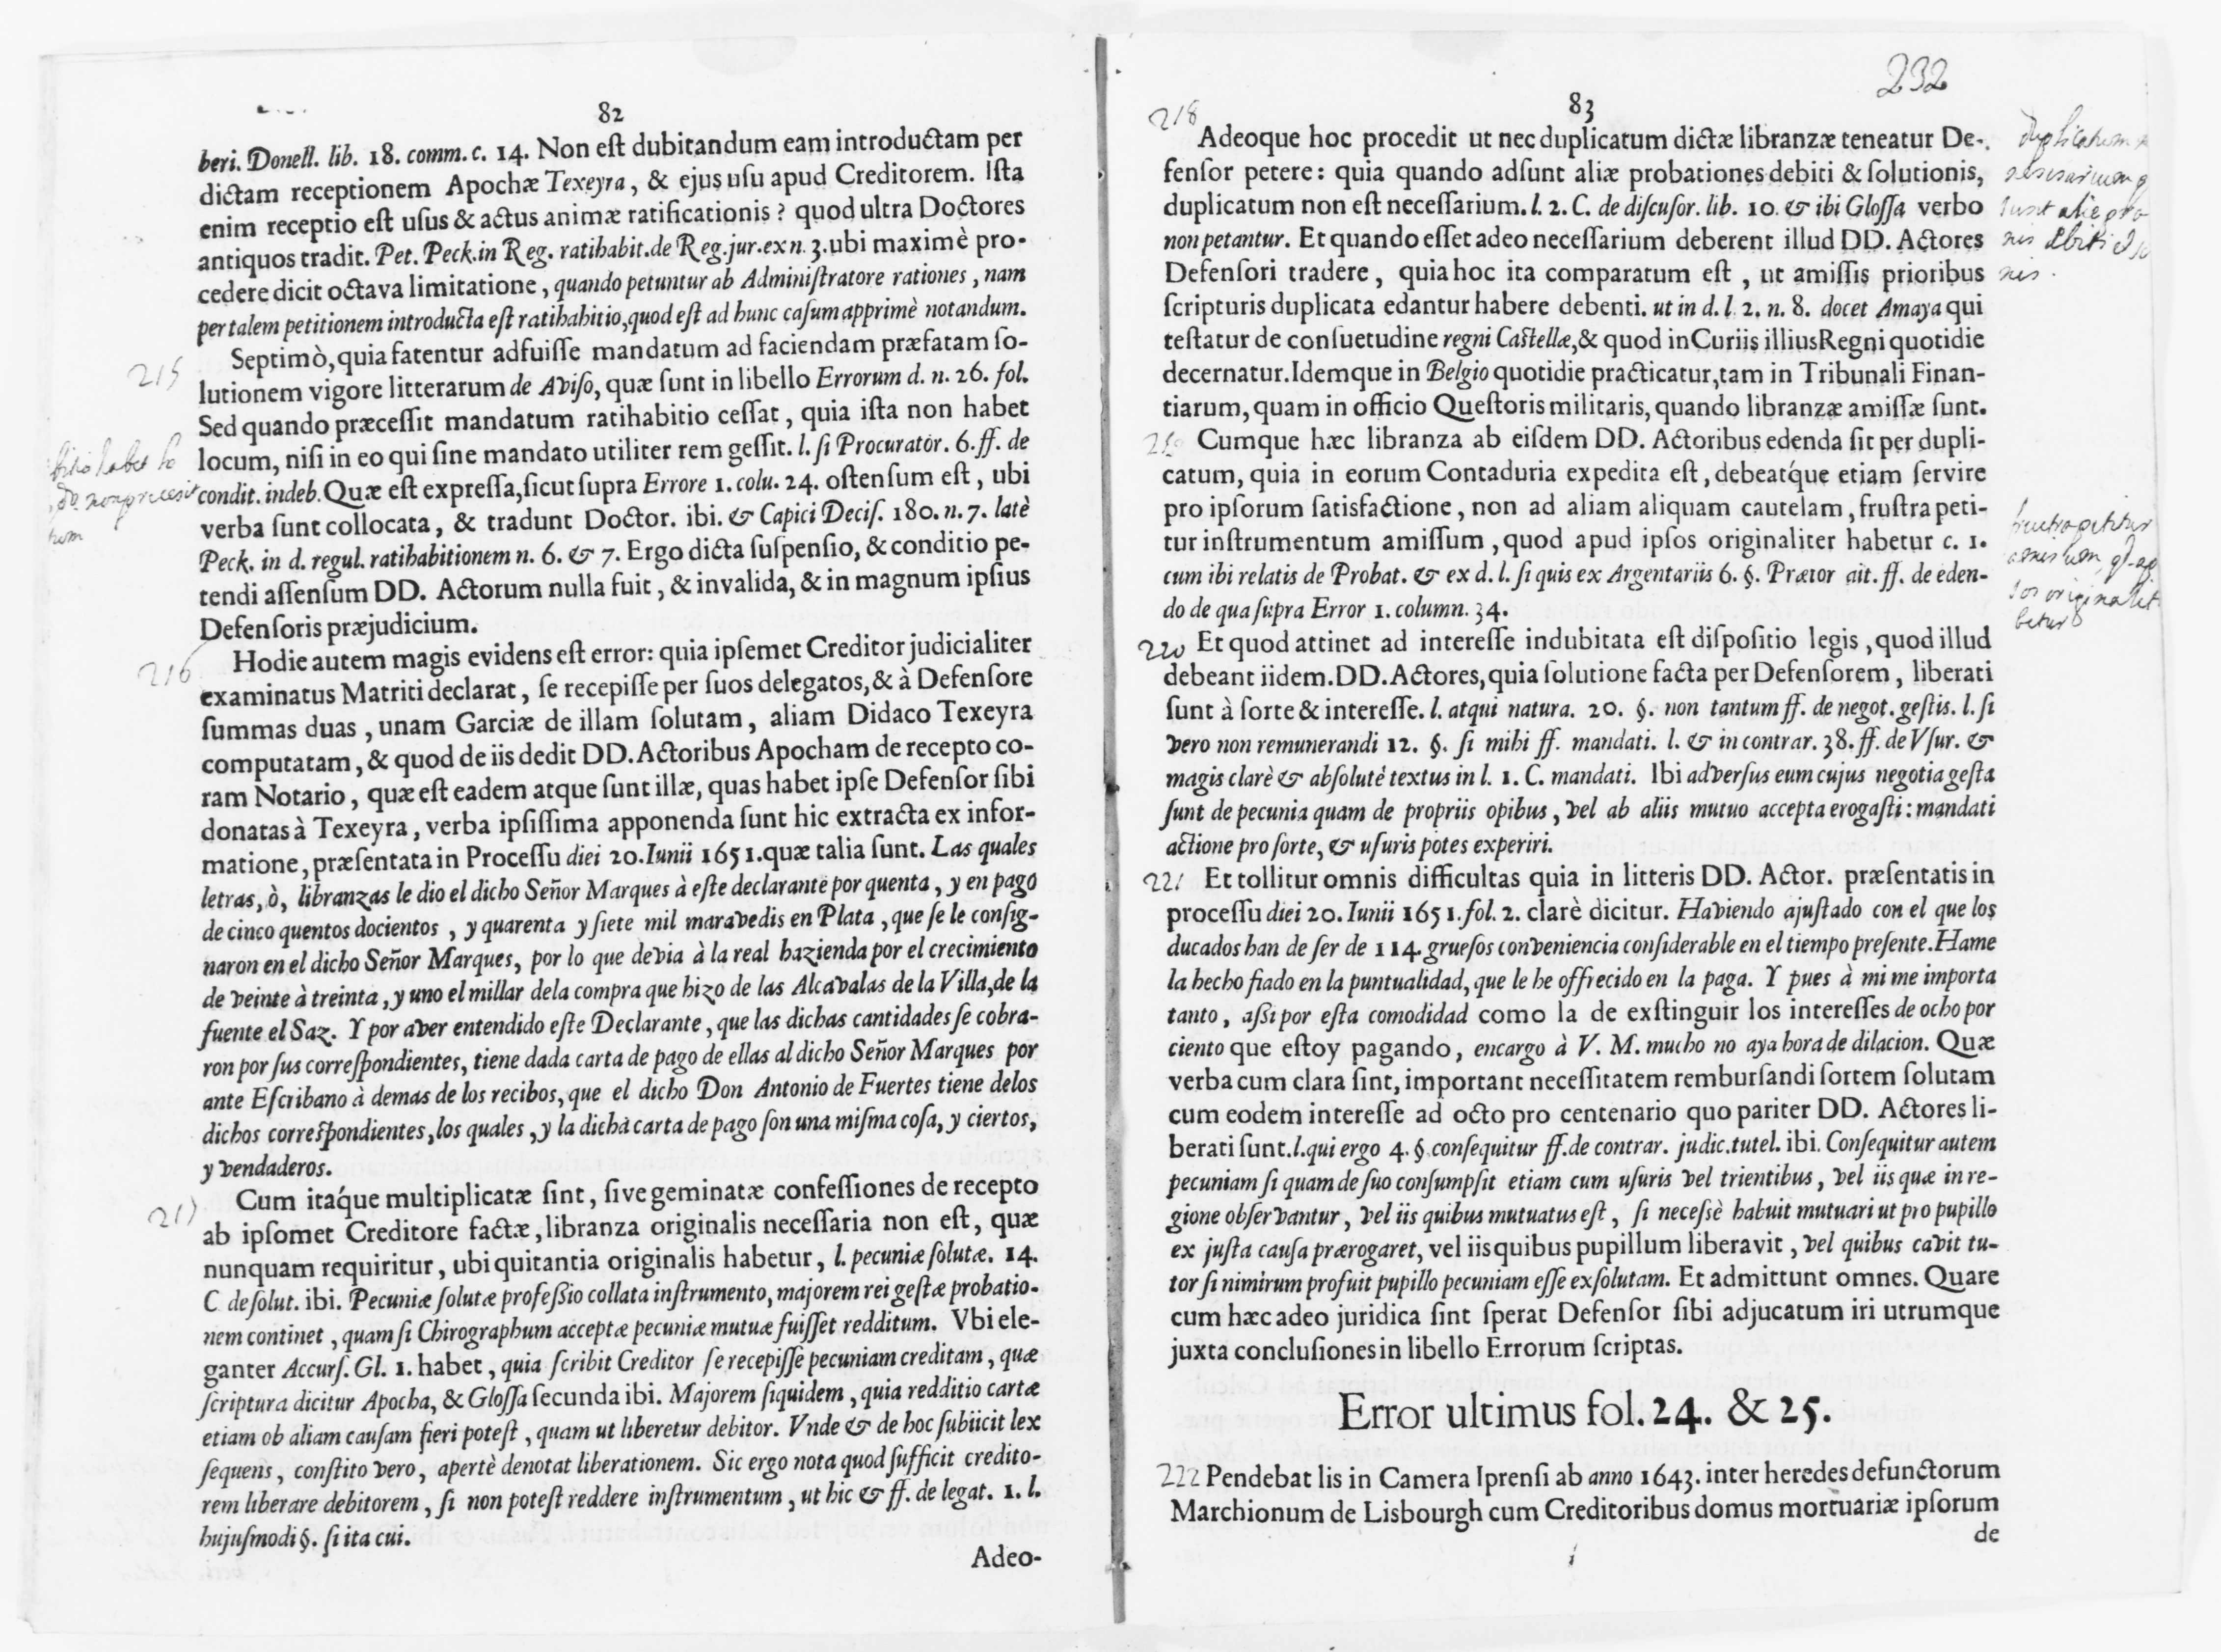 82
beri. Donell. lib. 18. comm. c. 14. Non eſt dubitandum eam introductam per
dictam receptionem Apochæ Texeyra, & ejus uſu apud Creditorem. Iſta
enim receptio eſt uſus & actus animæ ratificationis? quod ultra Doctores
antiquos tradit. Pet. Peck. in Reg. ratihabit. de Reg. jur. ex n. 3. ubi maximè pro-
cedere dicit octava limitatione, quando petuntur ab Adminiſtratore rationes, nam
per talem petitionem introducta eſt ratihabitio, quod eſt ad hunc caſum apprimè notandum.
215
Septimò, quia fatentur adfuiſſe mandatum ad faciendam præfatam ſo-
lutionem vigore litterarum de Aviſo, quæ ſunt in libello Errorum d. n. 26. fol.
Sed quando præceſſit mandatum ratihabitio ceſſat, quia iſta non habet
locum, niſi in eo qui ſine mandato utiliter rem geſſit. l. ſi Procurator. 6. ff. de
condit. indeb. Quæ eſt expreſſa, ſicut ſupra Errore 1. colu. 24. oſtenſum eſt, ubi
verba ſunt collocata, & tradunt Doctor. ibi. & Capici Deciſ. 180. n. 7. latè
Peck. in d. regul. ratihabitionem n. 6. & 7. Ergo dicta ſuſpenſio, & conditio pe-
tendi aſſenſum DD. Actorum nulla fuit, & invalida, & in magnum ipſius
Defenſoris præjudicium.
216
Hodie autem magis evidens eſt error: quia ipſemet Creditor judicialiter
examinatus Matriti declarat, ſe recepiſſe per ſuos delegatos, & à Defenſore
ſummas duas, unam Garciæ de illam ſolutam, aliam Didaco Texeyra
computatam, & quod de iis dedit DD. Actoribus Apocham de recepto co-
ram Notario, quæ eſt eadem atque ſunt illæ, quas habet ipſe Defenſor ſibi
donatas à Texeyra, verba ipſiſſima apponenda ſunt hic extracta ex infor-
matione, præſentata in Proceſſu diei 20. Iunii 1651. quæ talia ſunt. Las quales
letras, ò, libranzas le dio el dicho Señor Marques à eſte declarante por quenta, y en pago
de cinco quentos docientos, y quarenta y ſiete mil maravedis en Plata, que ſe le conſig-
naron en el dicho Señor Marques, por lo que devia à la real hazienda por el crecimiento
de veinte à treinta, y uno el millar dela compra que hizo de las Alcavalas de la Villa, de la
fuente el Saz. Y por aver entendido eſte Declarante, que las dichas cantidades ſe cobra-
ron por ſus correſpondientes, tiene dada carta de pago de ellas al dicho Señor Marques por
ante Eſcribano à demas de los recibos, que el dicho Don Antonio de Fuertes tiene delos
dichos correſpondientes, los quales, y la dicha carta de pago ſon una miſma coſa, y ciertos,
y vendaderos.
217
Cum itaq́ue multiplicatæ ſint, ſive geminatæ confeſſiones de recepto
ab ipſomet Creditore factæ, libranza originalis neceſſaria non eſt, quæ
nunquam requiritur, ubi quitantia originalis habetur, l. pecuniæ ſolutæ. 14.
C de ſolut. ibi. Pecuniæ ſolutæ profeſſio collata inſtrumento, majorem rei geſtæ probatio-
nem continet, quam ſi Chirographum acceptæ pecuniæ mutuæ fuiſſet redditum. Vbi ele-
ganter Accurſ. Gl. 1. habet, quia ſcribit Creditor ſe recepiſſe pecuniam creditam, quæ
ſcriptura dicitur Apocha, & Gloſſa ſecunda ibi. Majorem ſiquidem, quia redditio cartæ
etiam ob aliam cauſam fieri poteſt, quam ut liberetur debitor. Vnde & de hoc ſubiicit lex
ſequens, conſtito vero, apertè denotat liberationem. Sic ergo nota quod ſufficit credito-
rem liberare debitorem, ſi non poteſt reddere inſtrumentum, ut hic & ff. de legat. 1. l.
hujuſmodi §. ſi ita cui.
Adeo-
232
83
218
Adeoque hoc procedit ut nec duplicatum dictæ libranzæ teneatur De-
fenſor petere: quia quando adſunt aliæ probationes debiti & ſolutionis,
duplicatum non eſt neceſſarium. l. 2. C. de diſcuſor. lib. 10. & ibi Gloſſa verbo
non petantur. Et quando eſſet adeo neceſſarium deberent illud DD. Actores
Defenſori tradere, quia hoc ita comparatum eſt, ut amiſſis prioribus
ſcripturis duplicata edantur habere debenti. ut in d. l. 2. n. 8. docet Amaya qui
teſtatur de conſuetudine regni Caſtellæ, & quod in Curiis illius Regni quotidie
decernatur. Idemque in Belgio quotidie practicatur, tam in Tribunali Finan-
tiarum, quam in officio Queſtoris militaris, quando libranzæ amiſſæ ſunt.
Cumque hæc libranza ab eiſdem DD. Actoribus edenda ſit per dupli-
catum, quia in eorum Contaduria expedita eſt, debeatq́ue etiam ſervire
pro ipſorum ſatisfactione, non ad aliam aliquam cautelam, fruſtra peti-
tur inſtrumentum amiſſum, quod apud ipſos originaliter habetur c. 1.
cum ibi relatis de Probat. & ex d. l. ſi quis ex Argentariis 6. §. Prætor ait. ff. de eden-
do de qua ſupra Error 1. column. 34.
220
Et quod attinet ad intereſſe indubitata eſt diſpoſitio legis, quod illud
debeant iidem. DD. Actores, quia ſolutione facta per Defenſorem, liberati
ſunt à ſorte & intereſſe. l. atqui natura. 20. §. non tantum ff. de negot. geſtis. l. ſi
vero non remunerandi 12. §. ſi mihi ff. mandati. l. & in contrar. 38. ff. de Vſur. &
magis clarè & abſolutè textus in l. 1. C. mandati. Ibi adverſus eum cujus negotia geſta
ſunt de pecunia quam de propriis opibus, vel ab aliis mutuo accepta erogaſti: mandati
actione pro ſorte, & uſuris potes experiri.
221
Et tollitur omnis difficultas quia in litteris DD. Actor. præſentatis in
proceſſu diei 20. Iunii 1651. fol. 2. clarè dicitur. Haviendo ajuſtado con el que los
ducados han de ſer de 114. grueſos conveniencia conſiderable en el tiempo preſente. Hame
la hecho fiado en la puntualidad, que le he offrecido en la paga. Y pues à mi me importa
tanto, aſſi por eſta comodidad como la de exſtinguir los intereſſes de ocho por
ciento que eſtoy pagando, encargo à V. M. mucho no aya hora de dilacion. Quæ
verba cum clara ſint, important neceſſitatem rembursandi ſortem ſolutam
cum eodem intereſſe ad octo pro centenario quo pariter DD. Actores li-
berati ſunt. l. qui ergo 4. §. conſequitur ff. de contrar. judic. tutel. ibi. Conſequitur autem
pecuniam ſi quam de ſuo conſumpſit etiam cum uſuris vel trientibus, vel iis quæ in re-
gione obſervantur, vel iis quibus mutuatus eſt, ſi neceſsè habuit mutuari ut pro pupillo
ex juſta cauſa prærogaret, vel iis quibus pupillum liberavit, vel quibus cavit tu-
tor ſi nimirum profuit pupillo pecuniam eſſe exſolutam. Et admittunt omnes. Quare
cum hæc adeo juridica ſint ſperat Defenſor ſibi adjucatum iri utrumque
juxta concluſiones in libello Errorum ſcriptas.
Error ultimus fol. 24. & 25.
222 Pendebat lis in Camera Iprenſi ab anno 1643. inter heredes defunctorum
Marchionum de Lisbourgh cum Creditoribus domus mortuariæ ipſorum
de